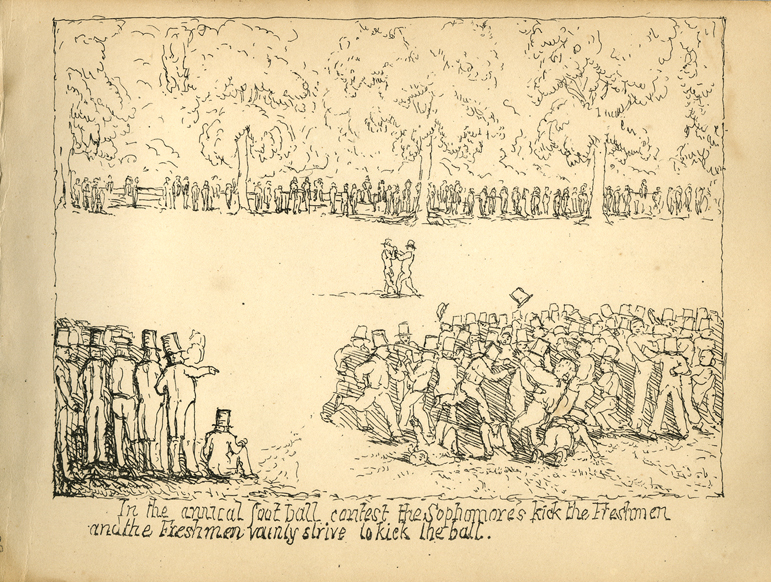 In the annual foot ball contest the Sophomores kick the Freshmen
and the Freshmen vainly strive to kick the ball.